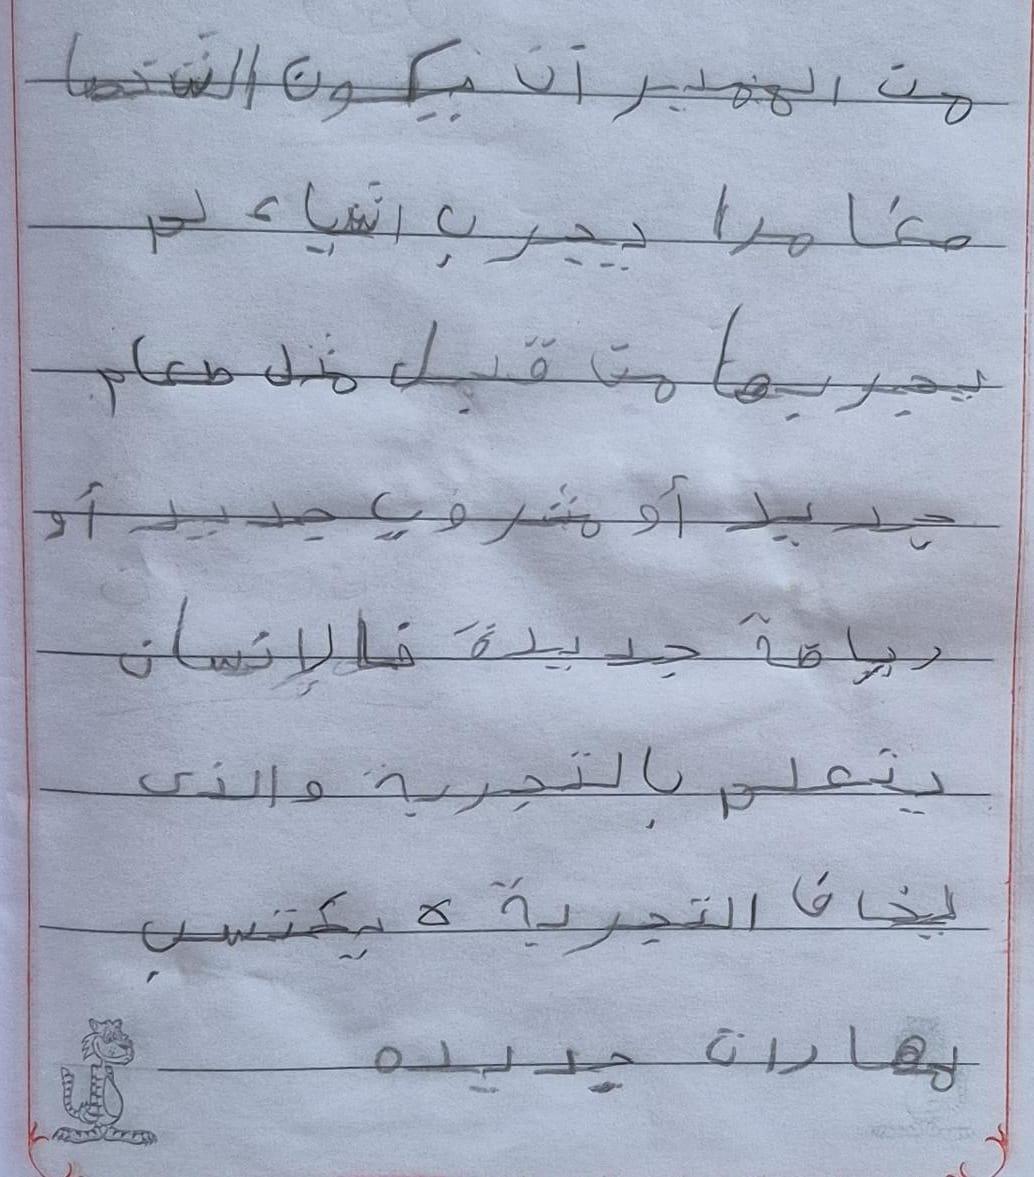 من المفيد أن يكون الشخصا
مغامرا يجرب اشياء لم
يجربها من قبل مثل طعام
جديد أو مشروب جديد أو
رياضة جديدة فالإنسان
يتعلم بالتجربة والذى
يخاف التجربة لا يكتسب
مهارات جديده